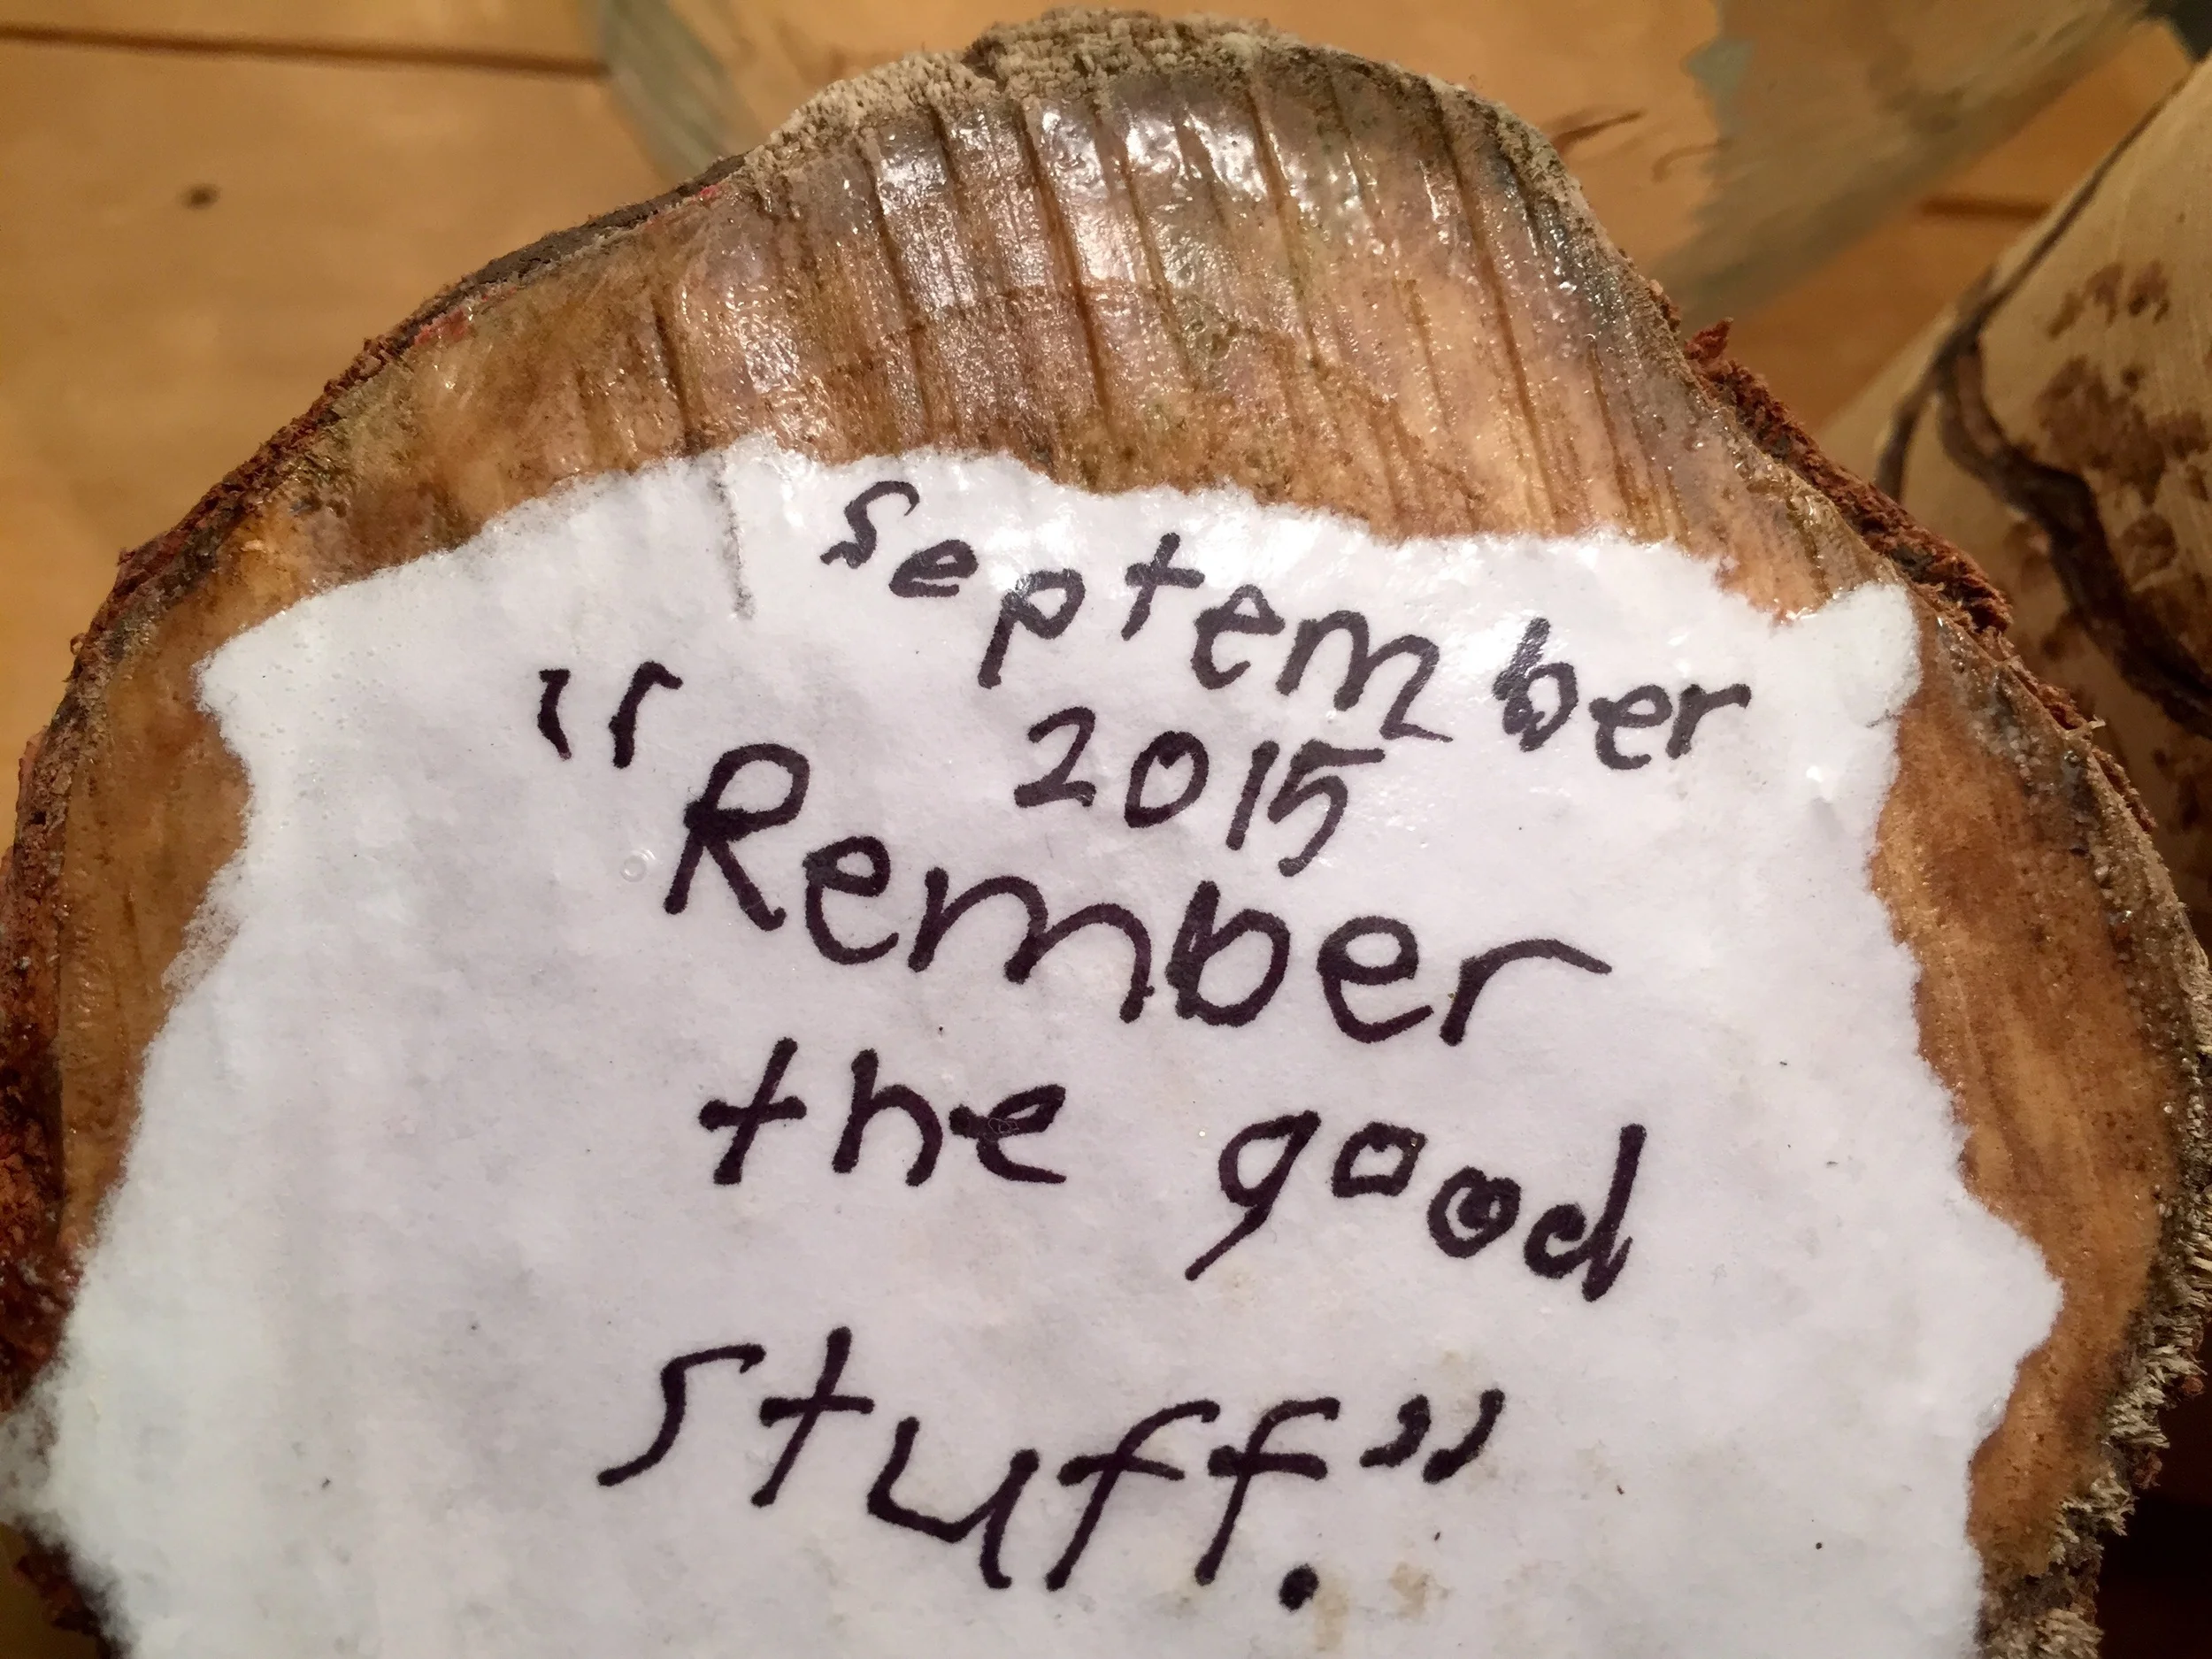 September
2015
“Rember
the good
stuff.”